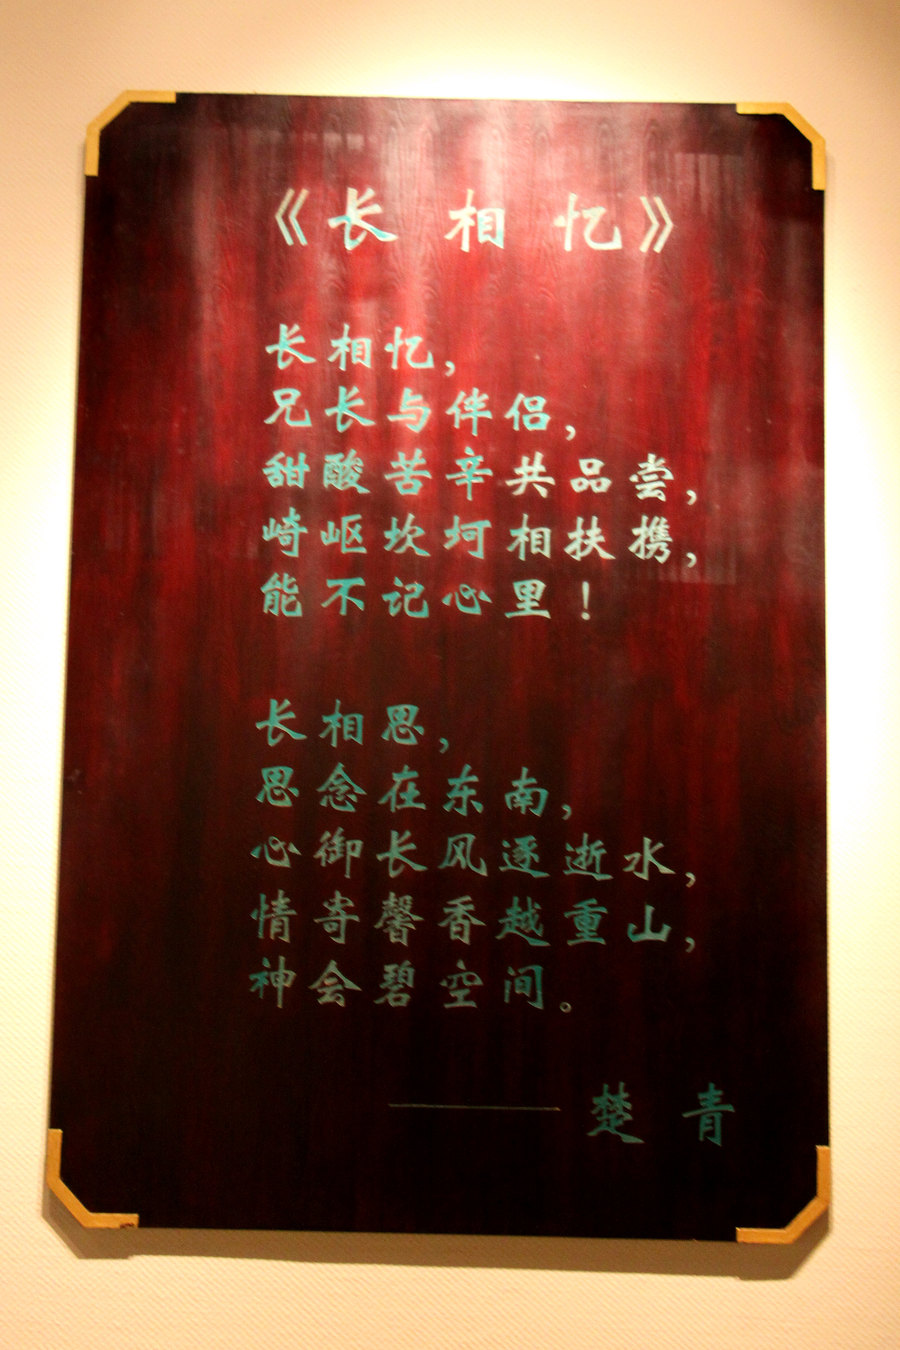 《长相忆》
长相忆，
兄长与伴侣，
甜酸苦辛共品尝，
崎岖坎坷相扶携，
能不记心里！
长相思，
思念在东南，
心御长风逐逝水，
情寄馨香越重山，
神会碧空间。
——楚青